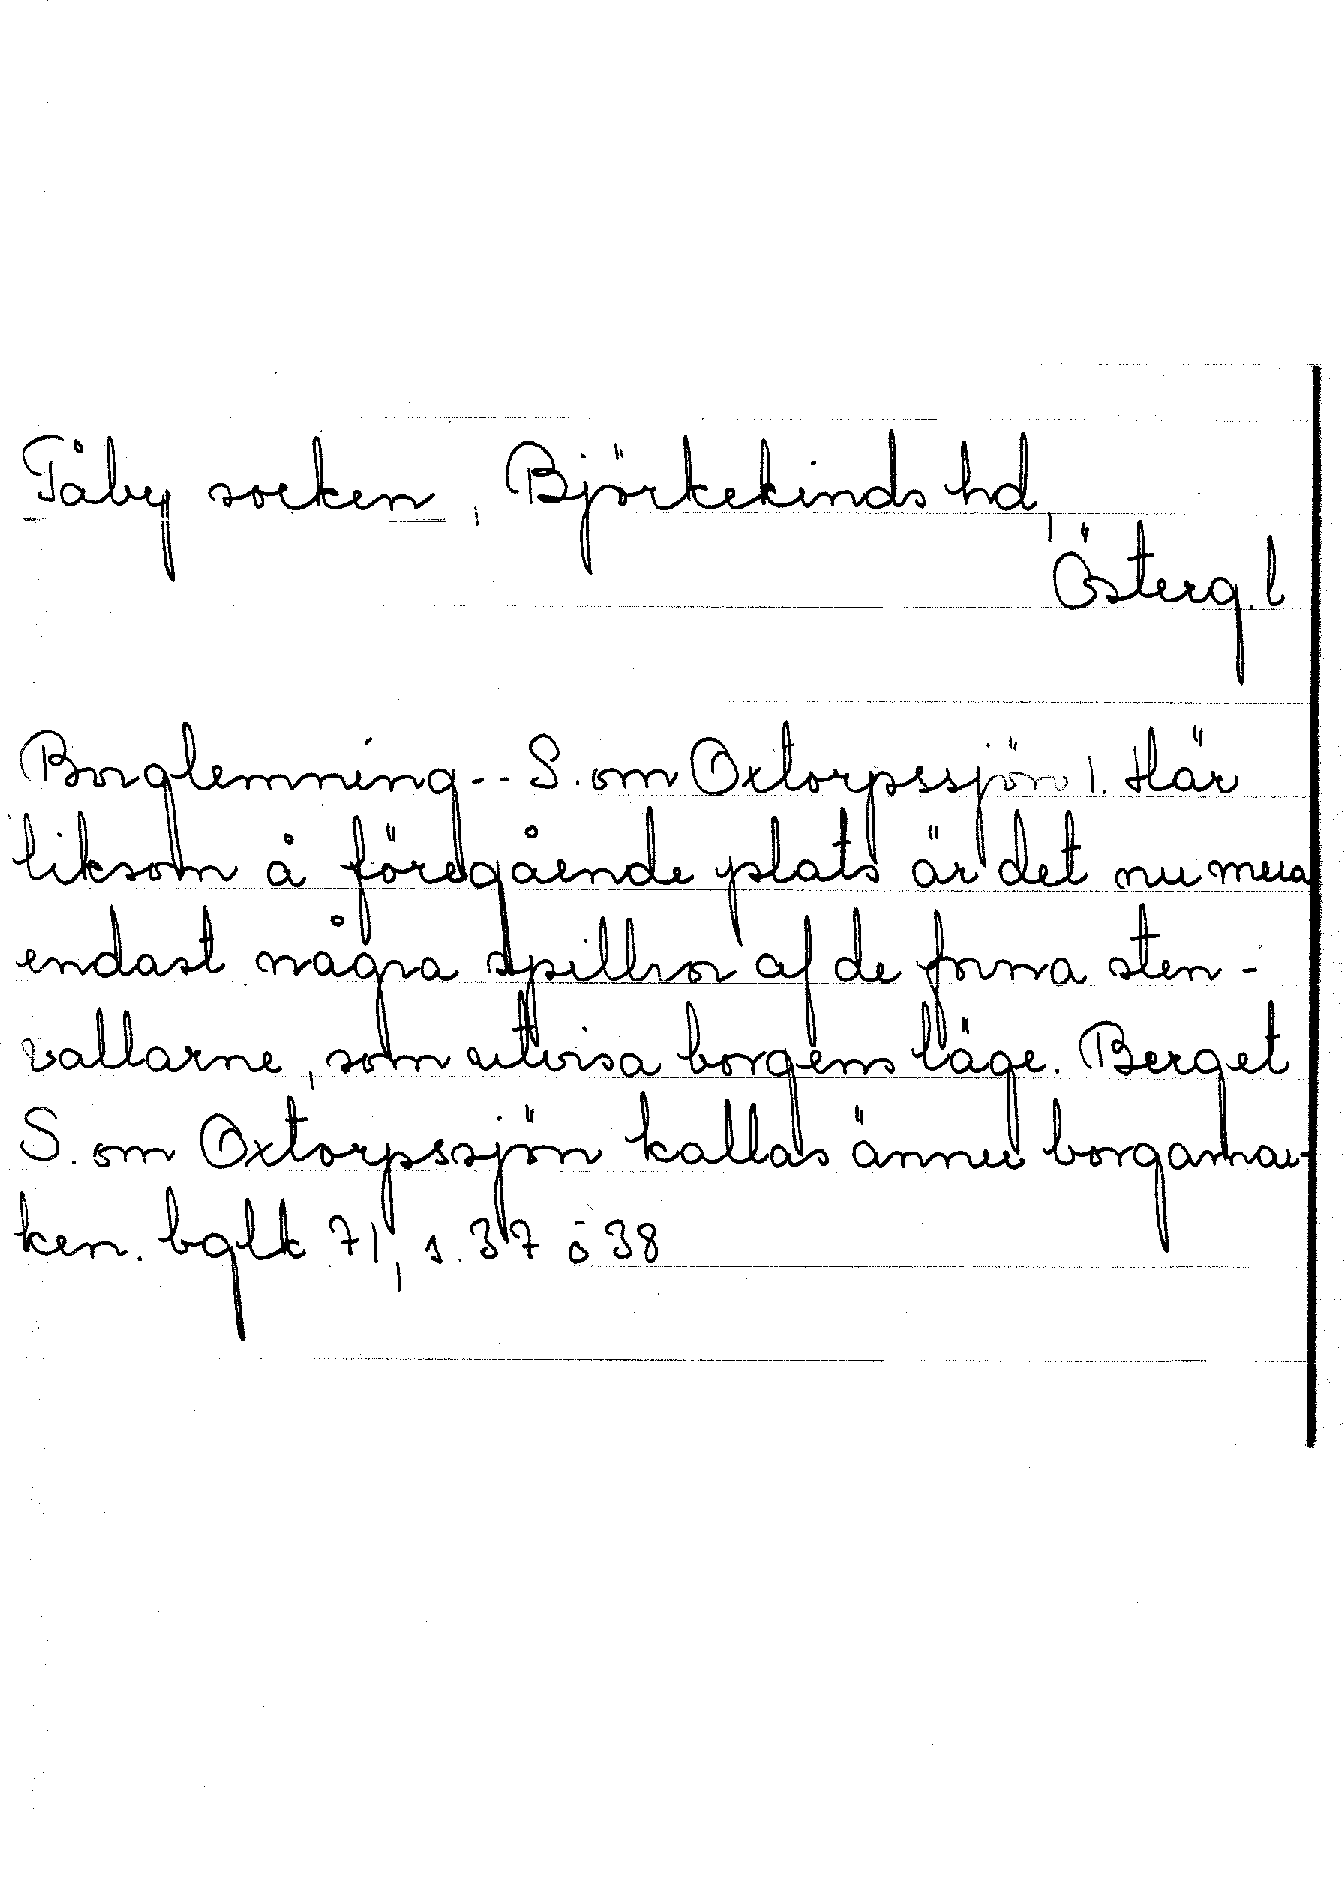 Tåby socken, Björkekinds hd,
Österg.l
Borglemning -- S. om Oxtorpssjön 1. Här
liksom å föregående plats är det nu mera
endast några spillror af de forna sten-
vallarne, som utvisa borgens läge. Berget
S. om Oxtorpssjön kallas ännu borgamar-
ken. bglk 71, s. 37 o 38